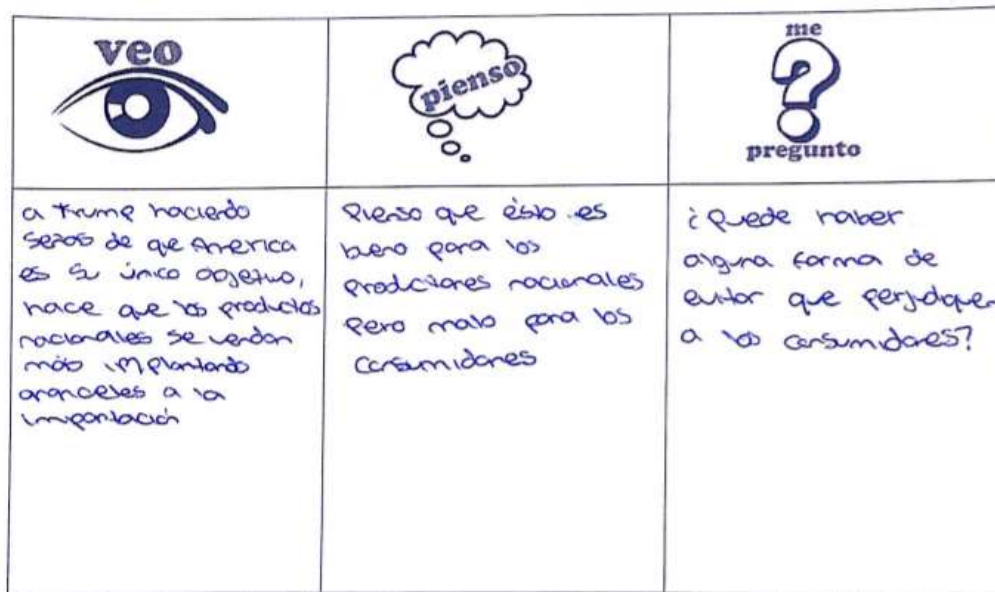 veo
pienso
me
?
pregunto
a Trump haciendo
señas de que America
es su único objetivo,
hace que los productos
nacionales se vendan
más implantando
aranceles a la
importación
Pienso que ésto es
bueno para los
productores nacionales
pero malo para los
consumidores
¿Puede haber
alguna forma de
evitar que perjudiquen
a los consumidores?